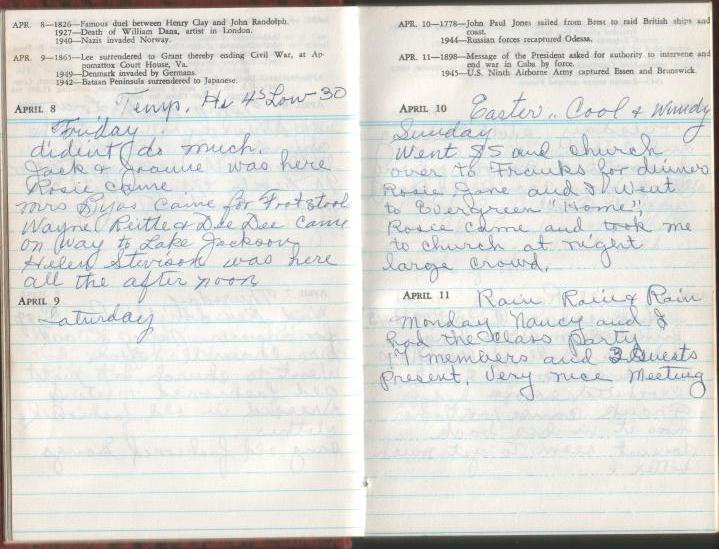 APR. 8—1826—Famous duel between Henry Clay and John Randolph.
1927—Death of William Dana, artist in London.
1940—Nazis invaded Norway.
APR. 9—1865—Lee surrendered to Grant thereby ending Civil War, at Ap-
pomattox Court House, Va.
1940—Denmark invaded by Germans.
1942—Bataan Peninsula surrendered to Japanese.
APRIL 8
Temp. Hi 45 Low 30
Friday
didint do much.
Jack & Joanne was here
Rosie came
Mrs Byas came for Footstool
Wayne Reitte & Dee Dee came
on way to Lake Jackson
Helen Stevison was here
all the after noon
APRIL 9
Saturday
APR. 10—1778—John Paul Jones sailed from Brest to raid British ships and
coast.
1944—Russian forces recaptured Odessa.
APR. 11—1898—Message of the President asked for authority to intervene and
end war in Cuba by force.
1945—U.S. Ninth Airborne Army captured Essen and Brunswick.
APRIL 10
Easter.. Cool & Windy
Sunday
Went SS and church
over to Franks for dinner
Rosie Jane and I Went
to Evergreen "Home",
Rosie came and took me
to church at night
large crowd.
APRIL 11
Rain Raing Rain
Monday Nancy and I
had the Class party
17 members and 3 Guests
present. Very nice Meeting